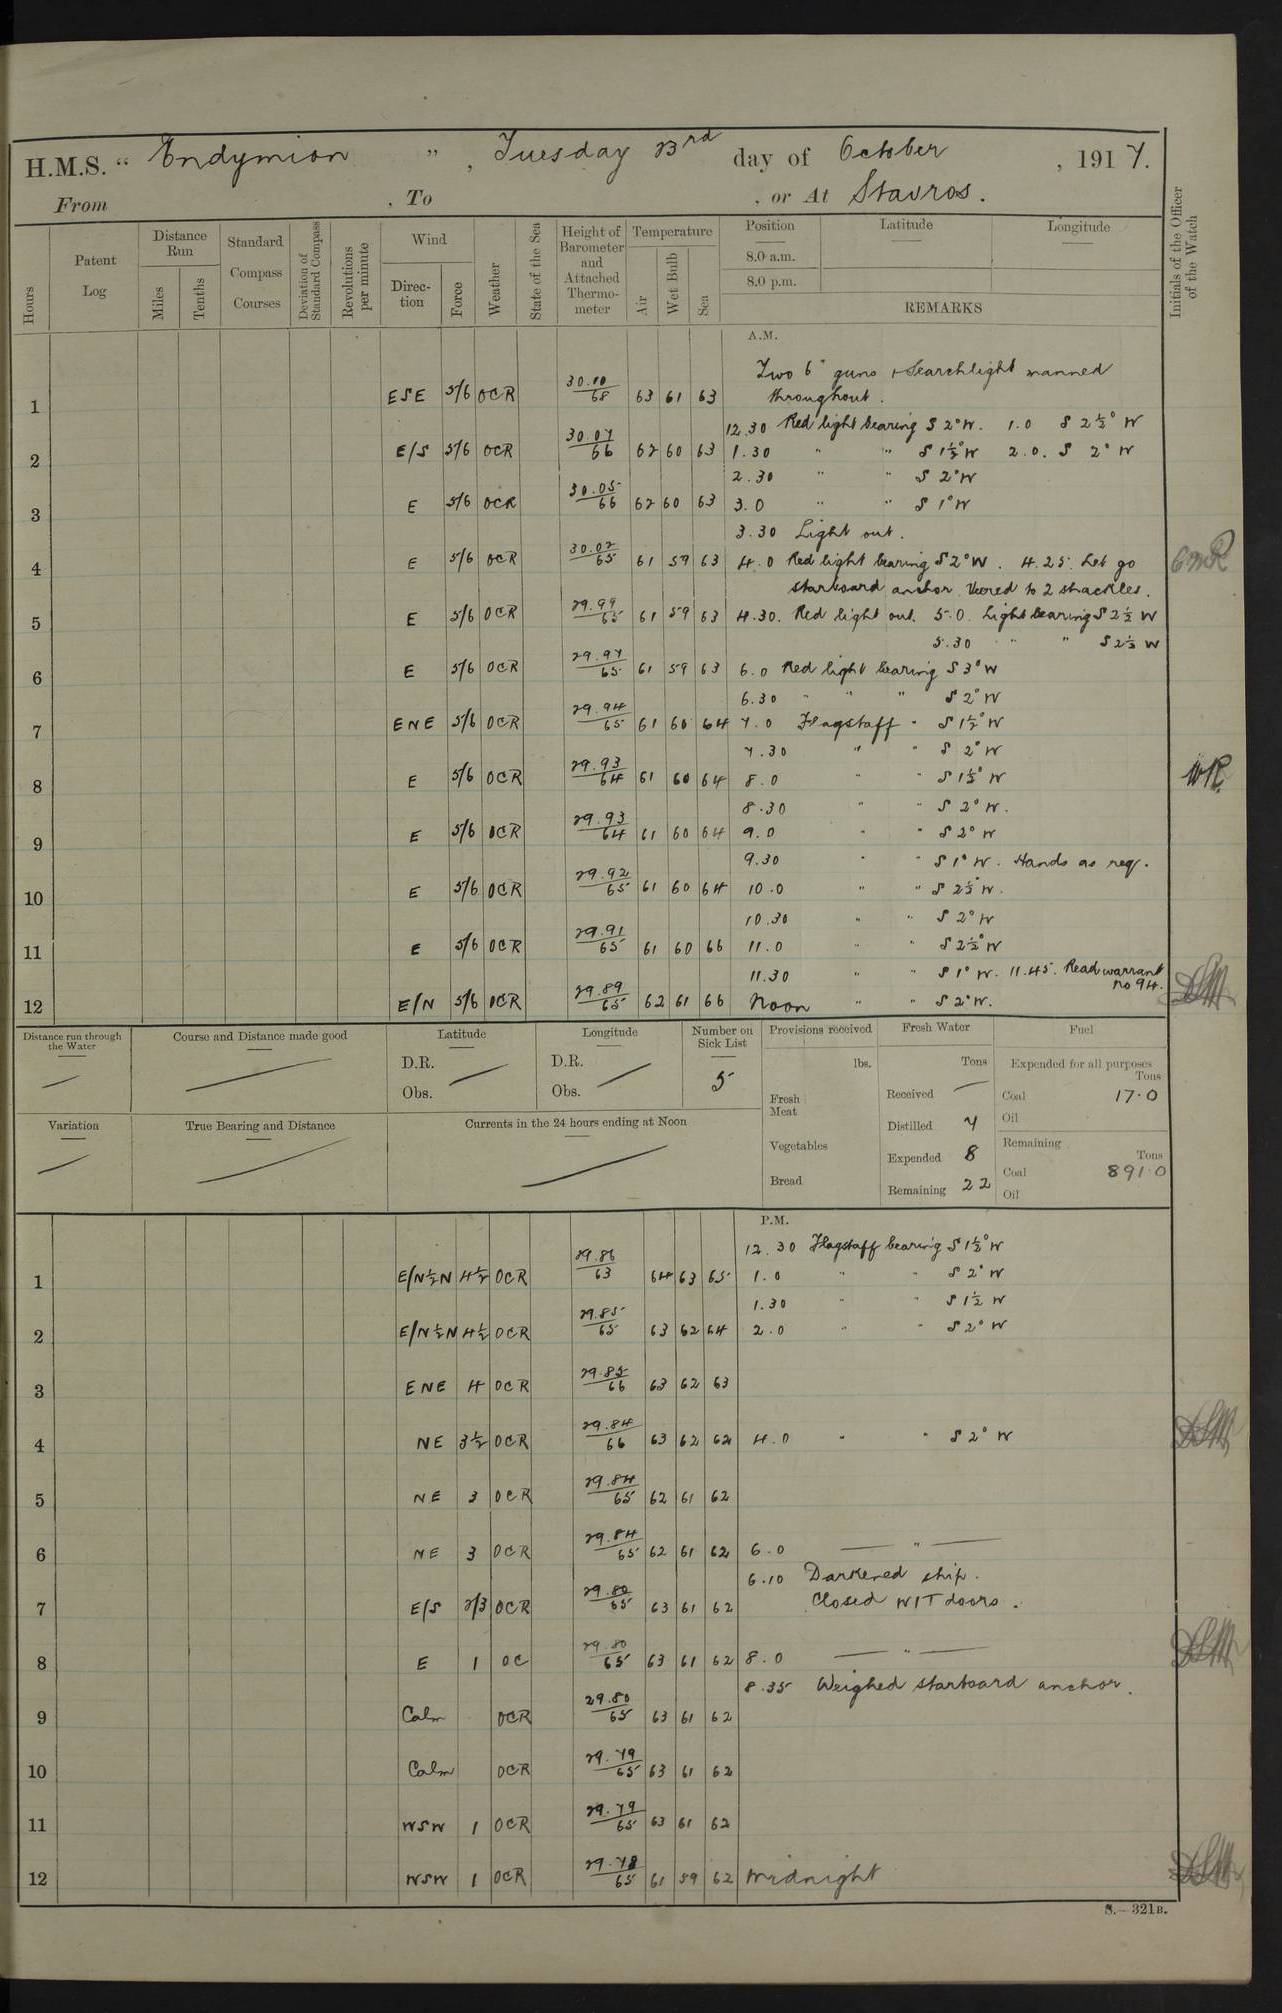 H.M.S. " Endymion ", Tuesday 23rd day of October, 1917.
From , To , or At Stavros.
Hours
Patent Log
Distance Run
Miles
Tenths
Standard Compass Courses
Deviation of Standard Compass
Revolutions per minute
Wind
Direction
Force
Weather
State of the Sea
Height of Barometer and Attached Thermometer
Temperature
Air
Wet Bulb
Sea
Position
8.0 a.m.
8.0 p.m.
Latitude
Longitude
REMARKS
Initials of the Officer of the Watch
A.M.
Two 6" guns + Searchlight manned
throughout.
1 ESE 5/6 OCR 30.10/68 63 61 63
12.30 Red light bearing S 2° W. 1.0 S 2½° W
2 E/S 5/6 OCR 30.07/66 62 60 63 1.30 " " S 1½° W 2.0. S 2° W
2.30 " " S 2° W
3 E 5/6 OCR 30.05/66 62 60 63 3.0 " " S 1° W
3.30 Light out.
4 E 5/6 OCR 30.02/65 61 59 63 4.0 Red light bearing S 2° W. 4.25. Let go
starboard anchor. Veered to 2 shackles.
5 E 5/6 OCR 29.99/65 61 59 63 4.30. Red light out. 5.0. Light bearing S 2½ W
5.30 " " S 2½ W
6 E 5/6 OCR 29.97/65 61 59 63 6.0 Red light bearing S 3° W
6.30 " " " S 2° W
7 ENE 5/6 OCR 29.94/65 61 60 64 7.0 Flagstaff " S 1½° W
7.30 " " S 2° W
8 E 5/6 OCR 29.93/64 61 60 64 8.0 " " S 1½° W
8.30 " " S 2° W.
9 E 5/6 OCR 29.93/64 61 60 64 9.0 " " S 2° W
9.30 " " S 1° W. Hands as req.
10 E 5/6 OCR 29.92/65 61 60 64 10.0 " " S 2½° W.
10.30 " " S 2° W
11 E 5/6 OCR 29.91/65 61 60 66 11.0 " " S 2½° W
11.30 " " S 1° W. 11.45. Read warrant
no 94.
12 E/N 5/6 OCR 29.89/65 62 61 66 Noon " " S 2° W.
Distance run through the Water
Course and Distance made good
Latitude
D.R.
Obs.
Longitude
D.R.
Obs.
Number on Sick List
5
Provisions received
lbs.
Fresh Meat
Vegetables
Bread
Fresh Water
Tons
Received —
Distilled 7
Expended 8
Remaining 22
Fuel
Expended for all purposes
Tons
Coal 17.0
Oil
Remaining
Tons
Coal 891.0
Oil
Variation
True Bearing and Distance
Currents in the 24 hours ending at Noon
P.M.
12.30 Flagstaff bearing S 1½° W
1 E/N½N 4½ OCR 29.86/63 64 63 65 1.0 " " S 2° W
1.30 " " S 1½ W
2 E/N½N 4½ OCR 29.85/65 63 62 64 2.0 " " S 2° W
3 ENE 4 OCR 29.85/66 63 62 63
4 NE 3½ OCR 29.84/66 63 62 62 4.0 " " S 2° W
5 NE 3 OCR 29.84/65 62 61 62
6 NE 3 OCR 29.84/65 62 61 62 6.0 — " —
6.10 Darkened ship.
Closed W/T doors.
7 E/S 2/3 OCR 29.80/65 63 61 62
8 E 1 OC 29.80/65 63 61 62 8.0 — " —
8.35 Weighed starboard anchor.
9 Calm OCR 29.80/65 63 61 62
10 Calm OCR 29.79/65 63 61 62
11 WSW 1 OCR 29.79/65 63 61 62
12 WSW 1 OCR 29.78/65 61 59 62 Midnight
S.—321B.